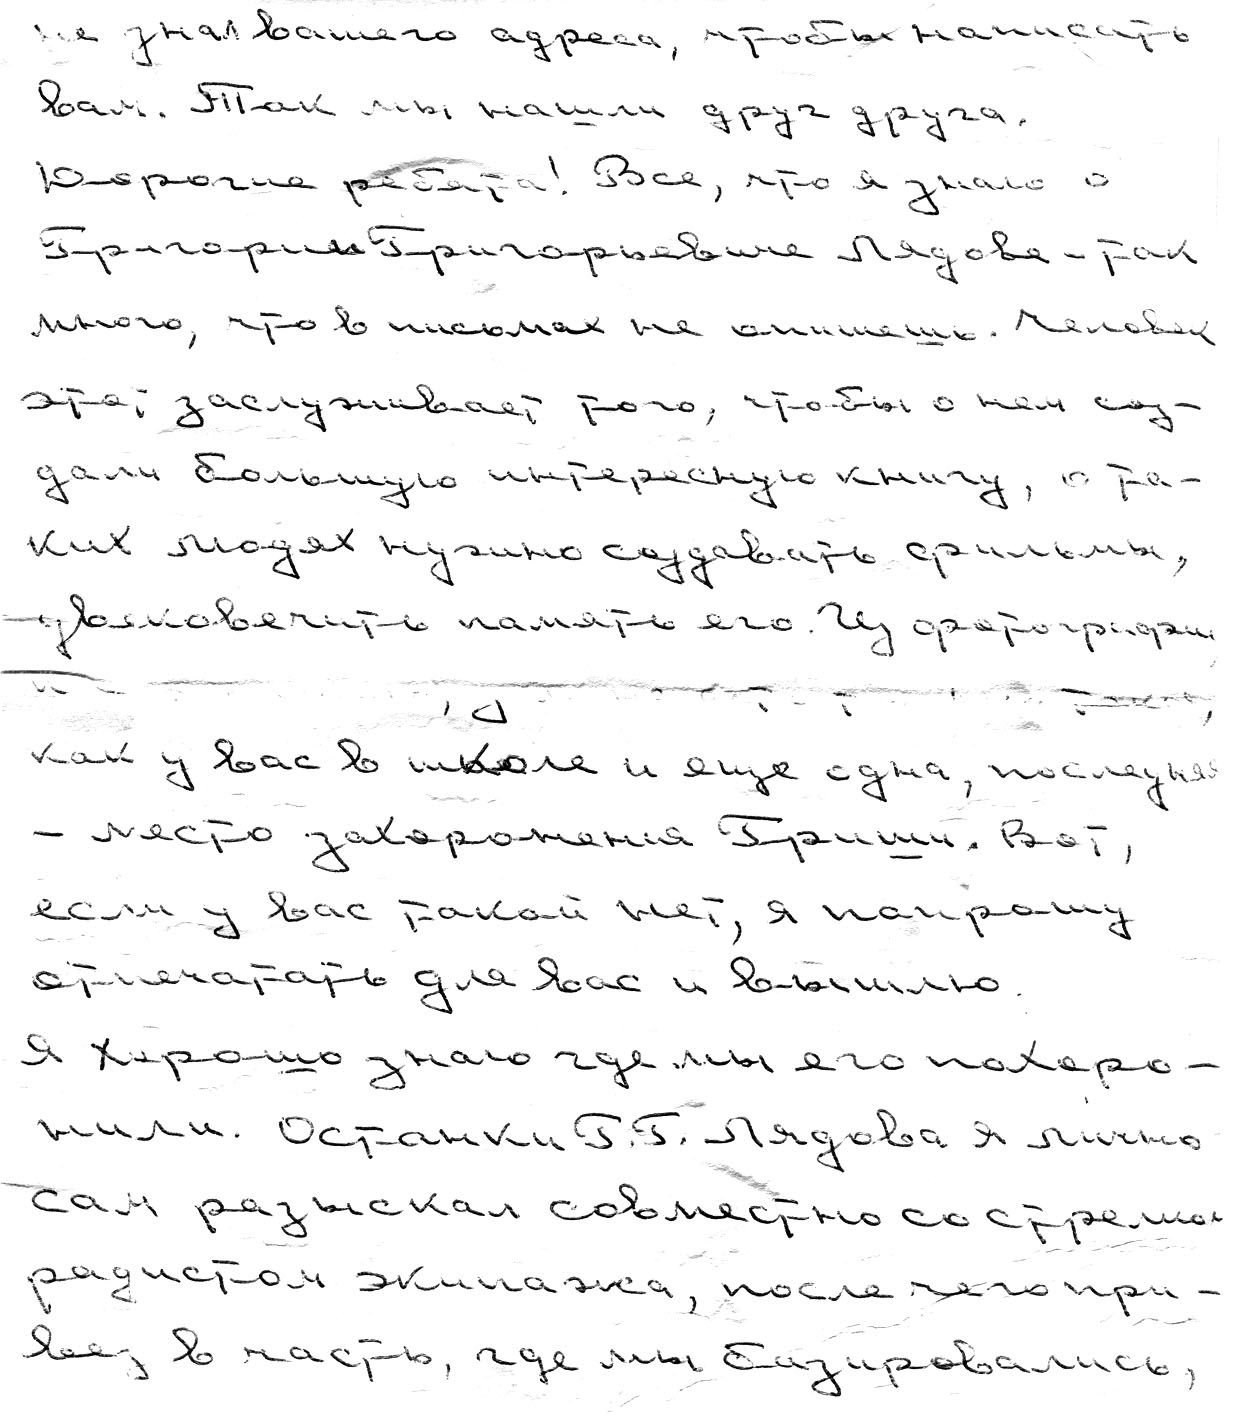 не знал вашего адреса, чтобы написать
вам. Так мы нашли друг друга.
Дорогие ребята! Все, что я знаю о
Григории Григорьевиче Лядове - так
много, что в письмах не опишешь. Человек
этот заслуживает того, чтобы о нем соз-
дали большую интересную книгу, о та-
ких людях нужно создавать фильмы,
увековечить память его. Из фотографии
как у вас в школе и еще одна, последняя
- место захоронения Гриши. Вот,
если у вас такой нет, я попрошу
отпечатать для вас и вышлю.
Я хорошо знаю где мы его похоро-
нили. Останки Г.Г. Лядова я лично
сам разыскал совместно со стрелком
радистом экипажа, после чего при-
вез в часть, где мы базировались,